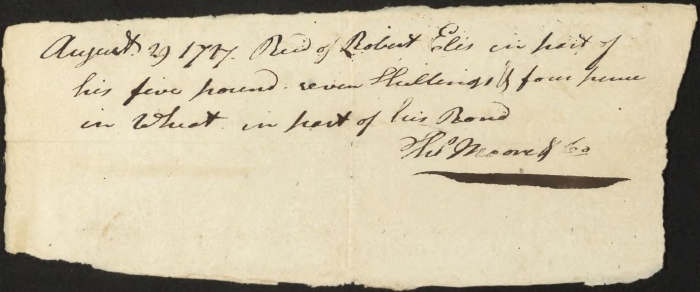 August 29 1777. Recd of Robert Elis in part of
his five pound seven Shillings & four pence
in Wheat in part of his Bond
Thos Moore & Co